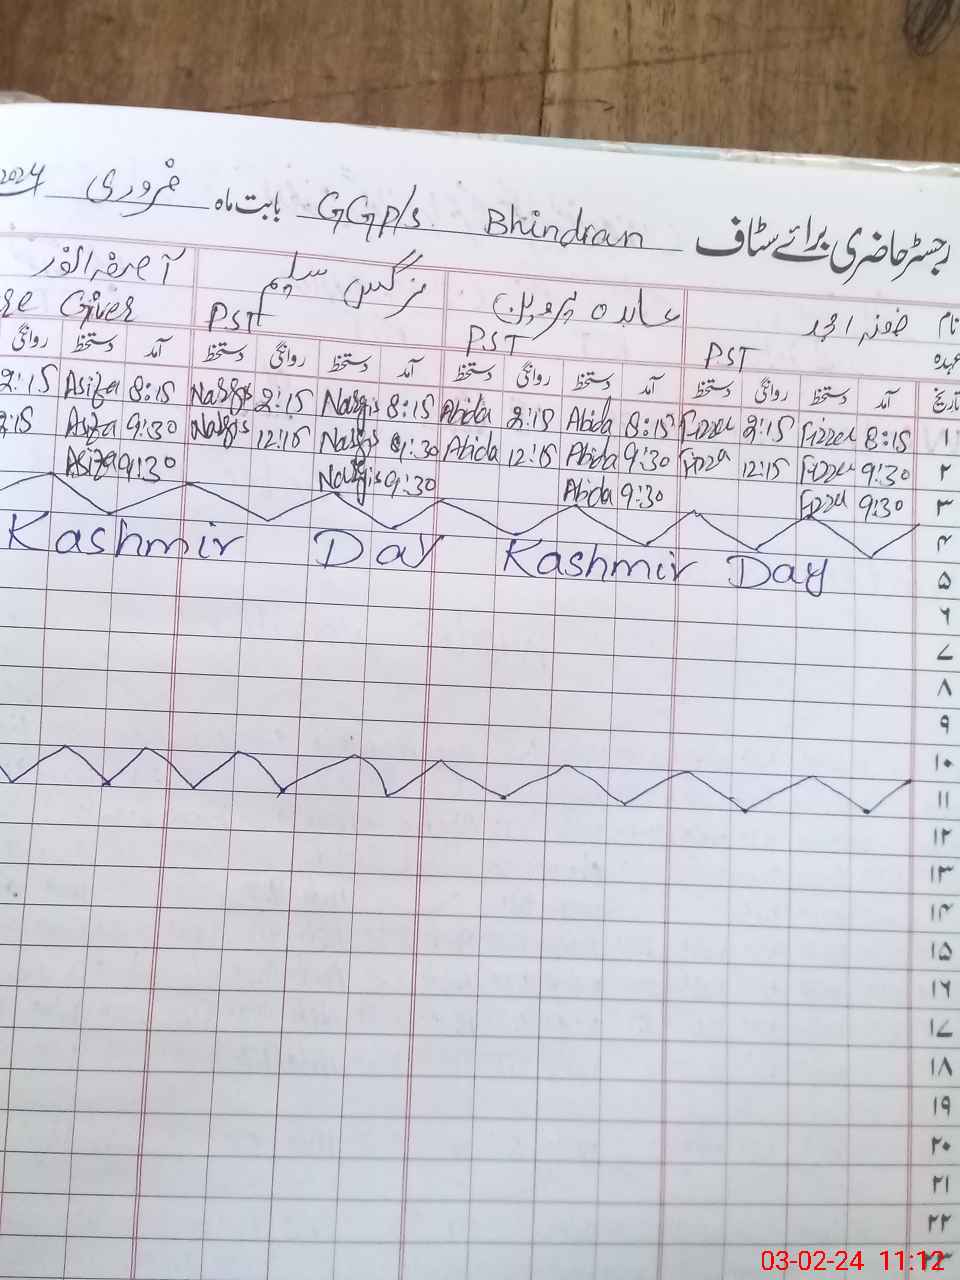 رجسٹر حاضری برائے سٹاف Bhindran GGP/s بابت ماہ فروری 2024
نام عابدہ پروین نرگس سلیم
عہدہ PST PST PST Giver
تاریخ آمد دستخط روانگی دستخط آمد دستخط روانگی دستخط آمد دستخط روانگی دستخط آمد دستخط روانگی
۱ 8:15 Fizza 2:15 Fizza 8:15 Abida 2:15 Abida 8:15 Nargis 2:15 Nargis 8:15 Asifa 2:15
۲ 9:30 Fizza 12:15 Fizza 9:30 Abida 12:15 Abida 9:30 Nargis 12:15 Nargis 9:30 Asifa
۳ 9:30 Fizza 9:30 Abida 9:30 Nargis 9:30 Asifa
۴
۵ Kashmir Day Kashmir Day
۶
۷
۸
۹
۱۰
۱۱
۱۲
۱۳
۱۴
۱۵
۱۶
۱۷
۱۸
۱۹
۲۰
۲۱
۲۲
۲۳
03-02-24 11:12